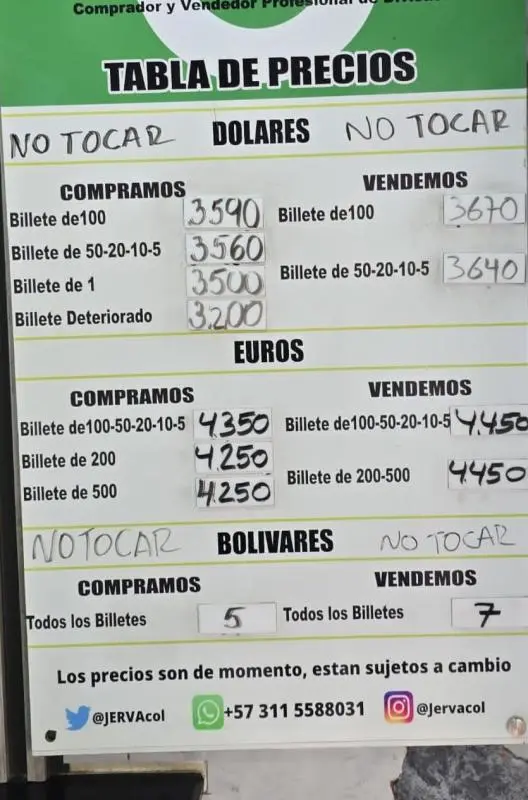 Comprador y Vendedor Profesional de
TABLA DE PRECIOS
NO TOCAR DOLARES NO TOCAR
COMPRAMOS VENDEMOS
Billete de100 3590 Billete de100 3670
Billete de 50-20-10-5 3560 Billete de 50-20-10-5 3640
Billete de 1 3500
Billete Deteriorado 3.200
EUROS
COMPRAMOS VENDEMOS
Billete de100-50-20-10-5 4.350 Billete de100-50-20-10-5 4.450
Billete de 200 4.250 Billete de 200-500 4.450
Billete de 500 4.250
NO TOCAR BOLIVARES NO TOCAR
COMPRAMOS VENDEMOS
Todos los Billetes 5 Todos los Billetes 7
Los precios son de momento, estan sujetos a cambio
@JERVAcol +57 311 5588031 @Jervacol